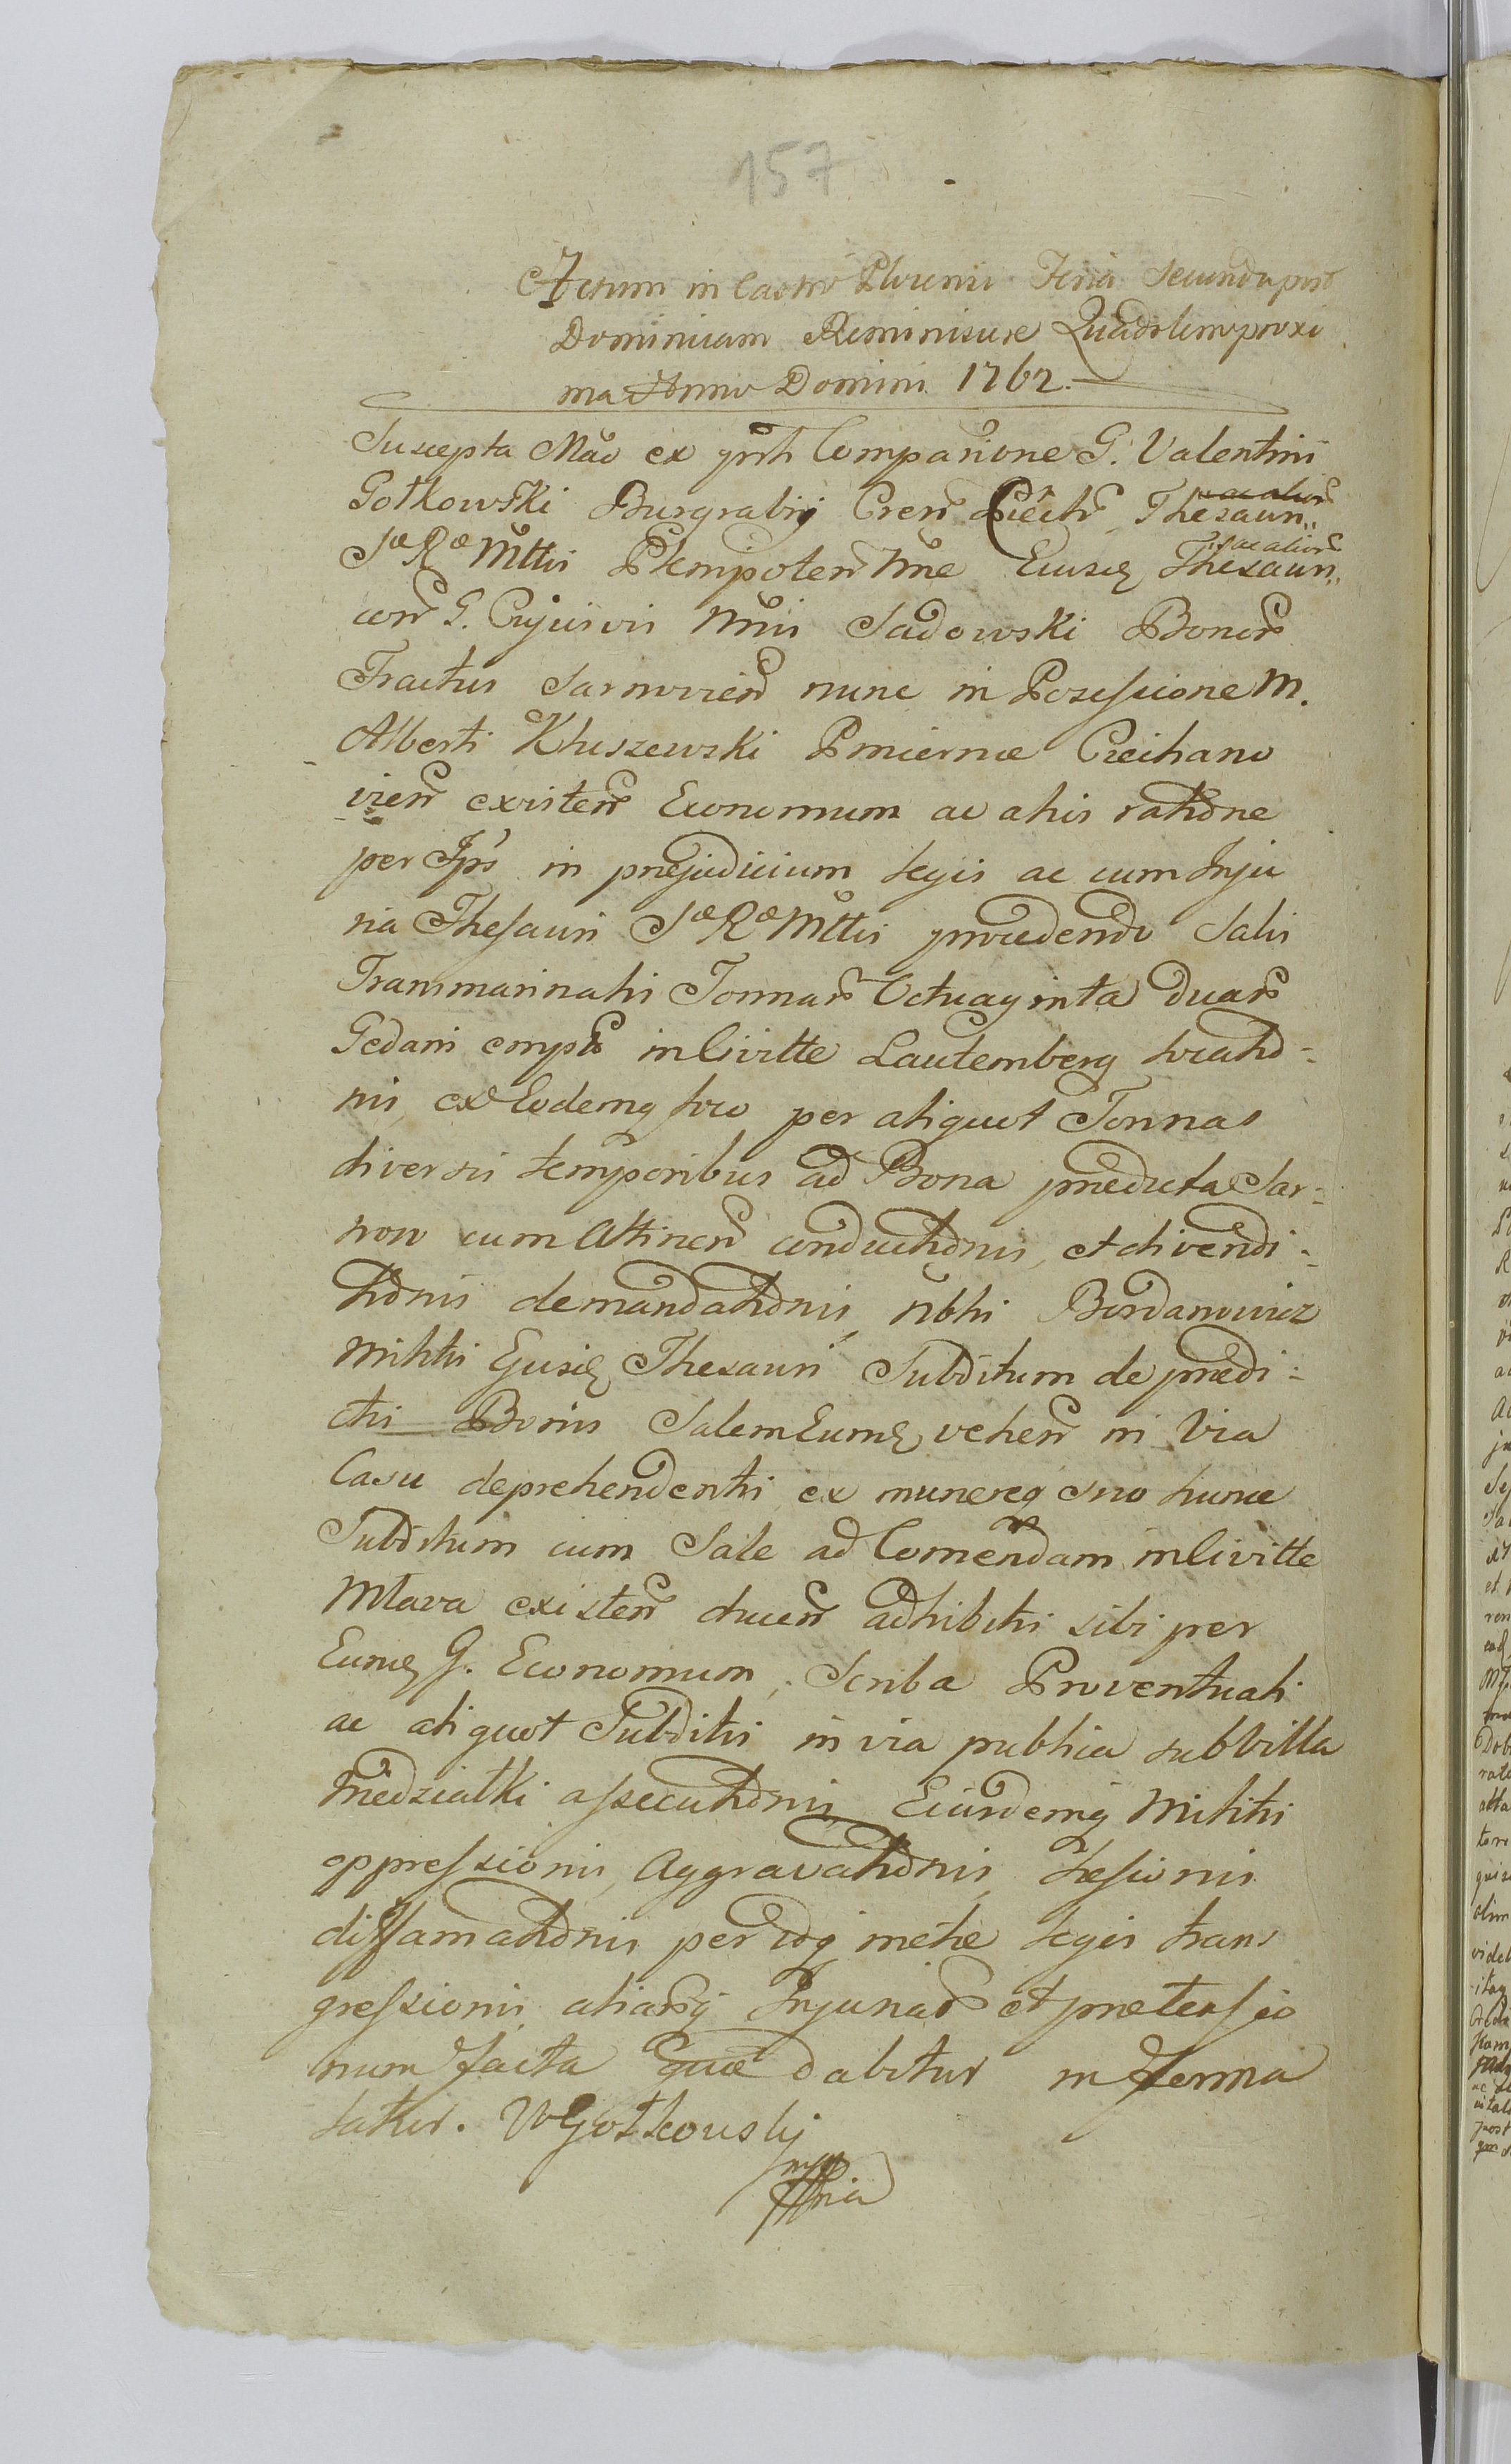 157
Actum in Castro Plocensi Feria Secunda post
Dominicam Reminiscere Quadrlemo proxi
ma Anno Domini 1762.
Suscepta Mão ex ynti Comparione G. Valentini
Gotkowski Burgrabij Cren Thesaur„
Sæ Ræ Mttis Plenipoten Nne Eiusq Thesaur„ ac alior
con G. Cujusvis Nnis Sadowski Bonor
Tractus Sarnovien nunc in Possessione M.
Alberti Kluszewski Pincernæ Ciechano
vien existen Economum ac aliis rahone
per Ips in præjudicium Legis ac cum Inju
ria Thesauri Sæ Ræ Mttis procedendo Salis
Transmarinalis Tonnar Octuaginta duar
Gedani empt in Civitte Lautemberg locatio-
nis, ex Eodemq loco per aliquot Tonnas
diversis temporibus ad Bona prædicta Sar-
now cum Attinen conductionis, et divendi-
tionis demandationis, Nbhi Bordanowicz
Militis Ejusq Thesauri Subditum de prædi-
ctis Bonis Salem Eumq vehen in Via
Casu deprehendentis ex munereq suo hunc
Subditum cum Sale ad Comendam in Civitte
Mlava existen ducen adhibitis sibi per
Eumq G. Economum, Scriba Proventuali
ac aliquot Subditis in via publica sub Villa
Niedzialki assecutionis Eiusdemq Militis
oppressionis, Aggravationis, Læsionis
diffamationis per idq inche Legis trans
gressionis, aliarq Injuriar et prætensio
num facta quæ dabitur in forma
latius. WGotkowskij
mp